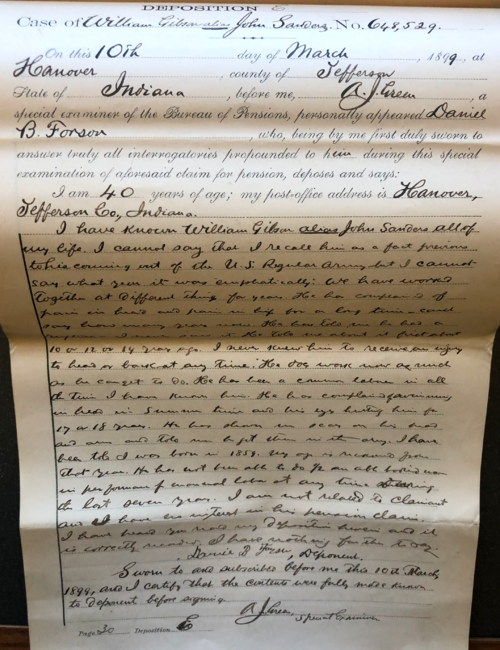 DEPOSITION E
Case of William Gilson alias John Sanders, No. 648,529.
On this 10th day of March, 1899, at
Hanover, county of Jefferson
State of Indiana, before me, A J Green, a
special examiner of the Bureau of Pensions, personally appeared Daniel
B. Forson, who, being by me first duly sworn to
answer truly all interrogatories propounded to him during this special
examination of aforesaid claim for pension, deposes and says:
I am 40 years of age; my post-office address is Hanover,
Jefferson Co, Indiana.
I have known William Gilson alias John Sanders all of
my life. I cannot say that I recall him as a fact previous
to his coming out of the U.S. Regular Army but I cannot
say what year it was emphatically. We have worked
together at different things for years. He has complained of
pain in head and pain in hip for a long time - cant
say how many years now. He has told me he had a
I never saw it. He told me about it first about
10 or 12 or 14 years ago. I never knew him to receive an injury
to head or back at any time. He does work now as much
as he can get to do. He has been a common laborer in all
the time I have known him. He has complained of
in head in Summer time and his eyes hurting him for
17 or 18 years. He has shown me scar on his head
and arm and told me he got them in the army. I have
been told I was born in 1859. My age is reckoned from
that year. He has not been able to do ½ an able bodied man
in performance of manual labor at any time during
the last seven years. I am not related to claimant
and I have no interest in his pension claim.
I have heard you read my deposition herein and it
is correctly recorded. I have nothing further to say.
Daniel B Forson, Deponent.
Sworn to and subscribed before me this 10th March
1899, and I certify that the contents were fully made known
to deponent before signing.
A J Green, Special Examiner
Page 30 Deposition E